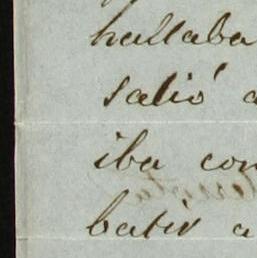 hallaba
salió a
iba con
batir a